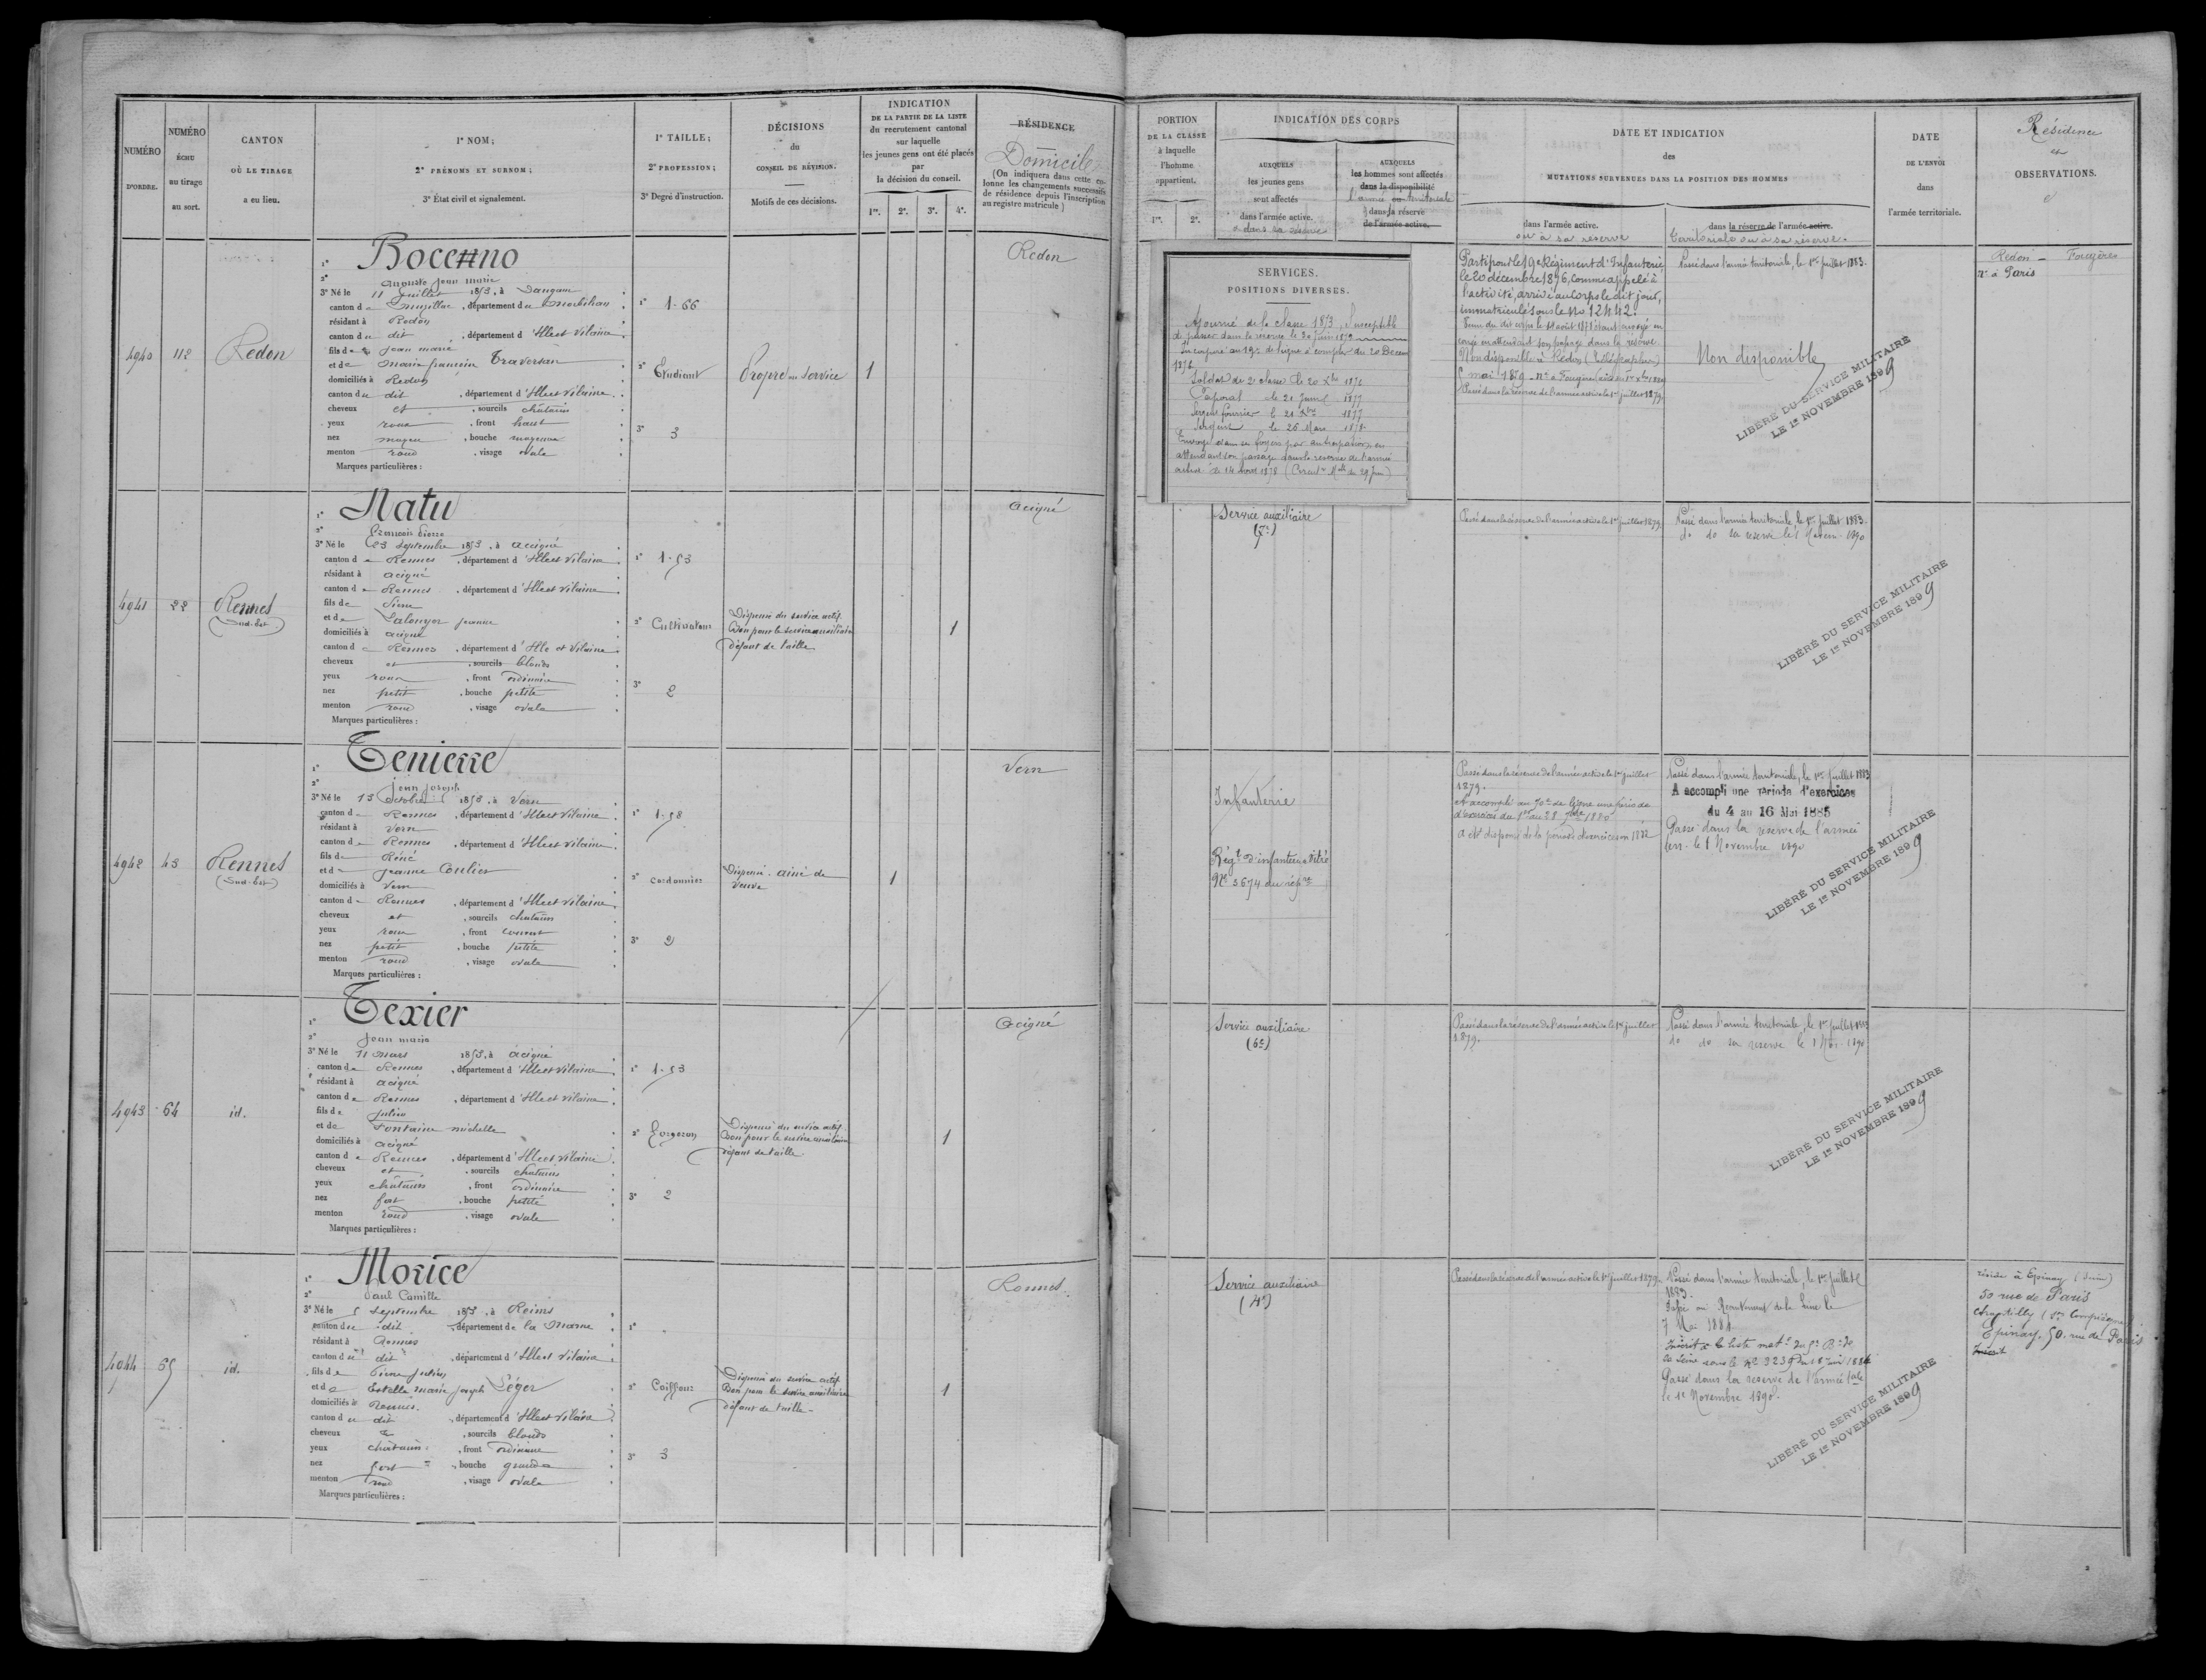 NUMÉRO
D'ORDRE.
NUMÉRO
ÉCHU
au tirage
au sort.
CANTON
OÙ LE TIRAGE
a eu lieu.
1° NOM;
2° PRÉNOMS ET SURNOM;
3° État civil et signalement.
1° TAILLE;
2° PROFESSION;
3° Degré d'instruction.
DÉCISIONS
du
CONSEIL DE RÉVISION.
Motifs de ces décisions.
INDICATION
DE LA PARTIE DE LA LISTE
du recrutement cantonal
sur laquelle
les jeunes gens ont été placés
par
la décision du conseil.
1re. 2e. 3e. 4e.
RÉSIDENCE
Domicile
(On indiquera dans cette co-
lonne les changements successifs
de résidence depuis l'inscription
au registre matricule)
4940
112
Redon
1° Bocenno
2° Auguste Jean Marie
3° Né le 11 Juillet 1853, à
canton de Muzillac, département du Morbihan
résidant à Redon
canton du dit, département d'Ille et Vilaine
fils de Jean Marie
et de Marie Françoise
domiciliés à Redon
canton du dit, département d'Ille et Vilaine
cheveux et, sourcils châtains
yeux roux, front haut
nez moyen, bouche moyenne
menton rond, visage ovale
Marques particulières :
1° 1.66
2° Etudiant
3° 3
Propre au Service
1
Redon
4941
22
Rennes
(Sud-Est)
1° Natu
2° François Pierre
3° Né le 23 Septembre 1853, à Acigné
canton de Rennes, département d'Ille et Vilaine
résidant à Acigné
canton de Rennes, département d'Ille et Vilaine
fils de Pierre
et de Jeanne
domiciliés à Acigné
canton de Rennes, département d'Ille et Vilaine
cheveux et, sourcils blonds
yeux roux, front ordinaire
nez petit, bouche petite
menton rond, visage ovale
Marques particulières :
1° 1.53
2° Cultivateur
3° 2
Dispensé du service actif
Bon pour le service auxiliaire
défaut de taille
1
Acigné
4942
43
Rennes
(Sud-Est)
1° Tenierre
2° Jean Joseph
3° Né le 13 Octobre 1853, à Vern
canton de Rennes, département d'Ille et Vilaine
résidant à Vern
canton de Rennes, département d'Ille et Vilaine
fils de Réné
et de Jeanne Coulier
domiciliés à Vern
canton de Rennes, département d'Ille et Vilaine
cheveux et, sourcils châtains
yeux roux, front couvert
nez petit, bouche petite
menton rond, visage ovale
Marques particulières :
1° 1.58
2° Cordonnier
3° 2
Dispensé. ainé de
veuve
1
Vern
4943
64
id.
1° Texier
2° Jean Marie
3° Né le 11 Mars 1853, à Acigné
canton de Rennes, département d'Ille et Vilaine
résidant à Acigné
canton de Rennes, département d'Ille et Vilaine
fils de Julien
et de Fontaine Michelle
domiciliés à Acigné
canton de Rennes, département d'Ille et Vilaine
cheveux et, sourcils châtains
yeux châtains, front ordinaire
nez fort, bouche petite
menton rond, visage ovale
Marques particulières :
1° 1.53
2° Forgeron
3° 2
Dispensé du service actif
Bon pour le service auxiliaire
défaut de taille
1
Acigné
4944
65
id.
1° Morice
2° Paul Camille
3° Né le 5 Septembre 1853, à Reims
canton du dit, département de la Marne
résidant à Rennes
canton du dit, département d'Ille et Vilaine
fils de Pierre Julien
et de Estelle Marie Joseph Léger
domiciliés à Rennes
canton du dit, département d'Ille et Vilaine
cheveux et, sourcils blonds
yeux châtains, front ordinaire
nez fort, bouche grande
menton rond, visage ovale
Marques particulières :
1°
2° Coiffeur
3° 3
Dispensé du service actif
Bon pour le service auxiliaire
défaut de taille
1
Rennes
PORTION
DE LA CLASSE
à laquelle
l'homme
appartient.
1re. 2e.
INDICATION DES CORPS
AUXQUELS
les jeunes gens
sont affectés
dans l'armée active.
ou dans sa réserve
AUXQUELS
les hommes sont affectés
dans la disponibilité
l'armée territoriale
dans la réserve
de l'armée active.
DATE ET INDICATION
des
MUTATIONS SURVENUES DANS LA POSITION DES HOMMES
dans l'armée active.
ou à sa réserve
dans la réserve de l'armée active.
territoriale ou à sa réserve.
DATE
DE L'ENVOI
dans
l'armée territoriale.
Résidence
et
OBSERVATIONS.
SERVICES.
POSITIONS DIVERSES.
Ajourné de la classe 1873, Susceptible
de passer dans la réserve le 30 juin 1879
Incorporé au 19e de ligne à compter du 20 Décem
1876
Soldat de 2e classe le 20 Xbre 1876
Caporal le 21 Juin 1877
Sergent fourrier le 21 Xbre 1877
Sergent le 26 Mars 1878
Envoyé dans ses foyers par anticipation en
attendant son passage dans la réserve de l'armée
active le 14 Aout 1878 (Circulre Mlle du 29 Juin)
Parti pour le 19e Régiment d'Infanterie
le 20 décembre 1876, comme appelé à
l'activité, arrivé au corps le dit jour,
immatriculé sous le No 12442.
congé en attendant son passage dans la réserve
Non disponible à Redon (Télégraphes)
Passé dans la réserve de l'armée active le 1er juillet 1879
Passé dans l'armée territoriale, le 1er Juillet 1883.
Non disponible
LIBÉRÉ DU SERVICE MILITAIRE
LE 1er NOVEMBRE 1899
Redon - Fougères
à Paris
Service auxiliaire
(7e)
Passé dans la réserve de l'armée active le 1er juillet 1879
Passé dans l'armée territoriale, le 1er Juillet 1883.
do do sa réserve le 1 Novem. 1890
LIBÉRÉ DU SERVICE MILITAIRE
LE 1er NOVEMBRE 1899
Infanterie
Régt d'infanterie Vitré
No 3674 du répre
Passé dans la réserve de l'armée active le 1er juillet
1879.
A accompli au 70e de ligne une période
d'exercices du 1er au 28 7bre 1880
A été dispensé de la période d'exercices en 1882
Passé dans l'armée territoriale, le 1er Juillet 1883
A accompli une période d'exercices
du 4 au 16 Mai 1885
Passé dans la réserve de l'armée
terr. le 1 Novembre 1890
LIBÉRÉ DU SERVICE MILITAIRE
LE 1er NOVEMBRE 1899
Service auxiliaire
(6e)
Passé dans la réserve de l'armée active le 1er juillet
1879.
Passé dans l'armée territoriale, le 1er Juillet 1883
do do sa réserve le 1 Nov. 1890
LIBÉRÉ DU SERVICE MILITAIRE
LE 1er NOVEMBRE 1899
Service auxiliaire
(4e)
Passé dans la réserve de l'armée active le 1er juillet 1879.
Passé dans l'armée territoriale, le 1er Juillet
1883.
Passé au Recrutement de la Seine le
7 Mai 1884
Passé dans la réserve de l'armée tale
le 1er Novembre 1890.
LIBÉRÉ DU SERVICE MILITAIRE
LE 1er NOVEMBRE 1899
réside à Epinay (Seine)
50 rue de Paris
Chantilly
Epinay. 50. rue de Paris
Inscrit